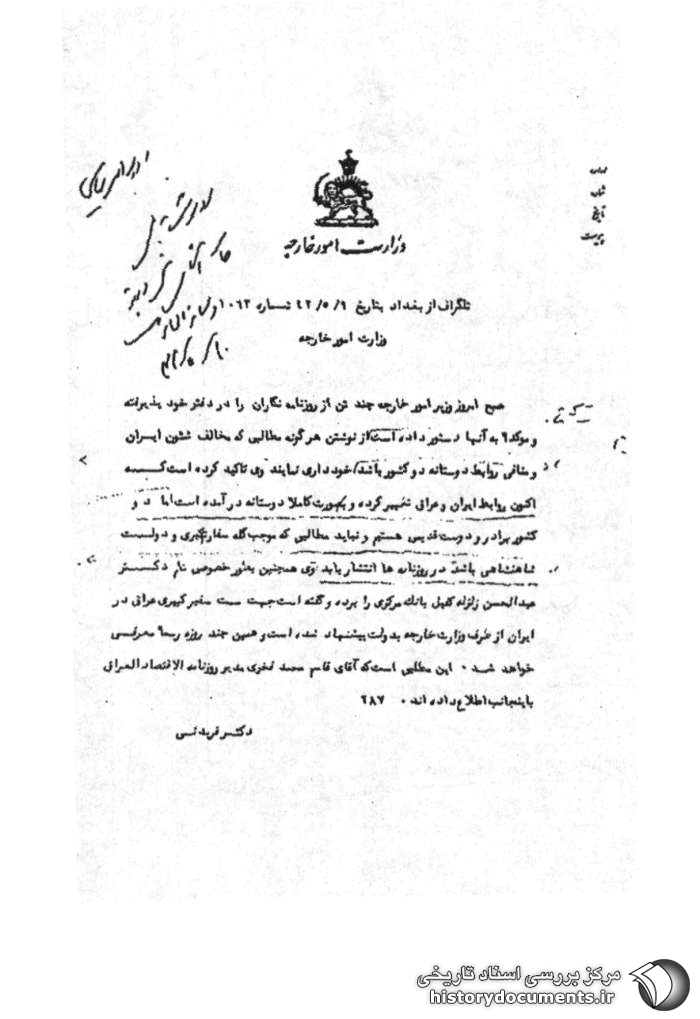 اداره
شماره
تاریخ
پیوست
وزارت امور خارجه
تلگراف از بغداد بتاریخ ۴۲/۵/۹ شماره ۱۰۶۳
وزارت امور خارجه
صبح امروز وزیر امور خارجه چند تن از روزنامه نگاران را در دفتر خود پذیرفته
و موکداً به آنها دستور داده است از نوشتن هر گونه مطالبی که مخالف شئون ایران
و منافی روابط دوستانه دو کشور باشد خود داری نمایند وی تاکید کرده است که
اکنون روابط ایران و عراق تغییر کرده و بصورت کاملا دوستانه در آمده است اما دو
کشور برادر و دوست قدیمی هستیم و نباید مطالبی که موجب گله سفارتکبری و دولت
شاهنشاهی باشد در روزنامه ها انتشار یابد وی همچنین بطور خصوصی نام دکتر
عبدالحسن زلزله کفیل بانک مرکزی را برده و گفته است جهت سمت سفیر کبیری عراق در
ایران از طرف وزارت خارجه بدولت پیشنهاد شده است و همین چند روزه رسماً معرفی
خواهد شد . این مطلبی است که آقای قاسم محمد فخری مدیر روزنامه الاقتصاد العراقی
باینجانب اطلاع داده اند . ۲۸۷
دکتر فریدنی
مرکز بررسی اسناد تاریخی
historydocuments.ir